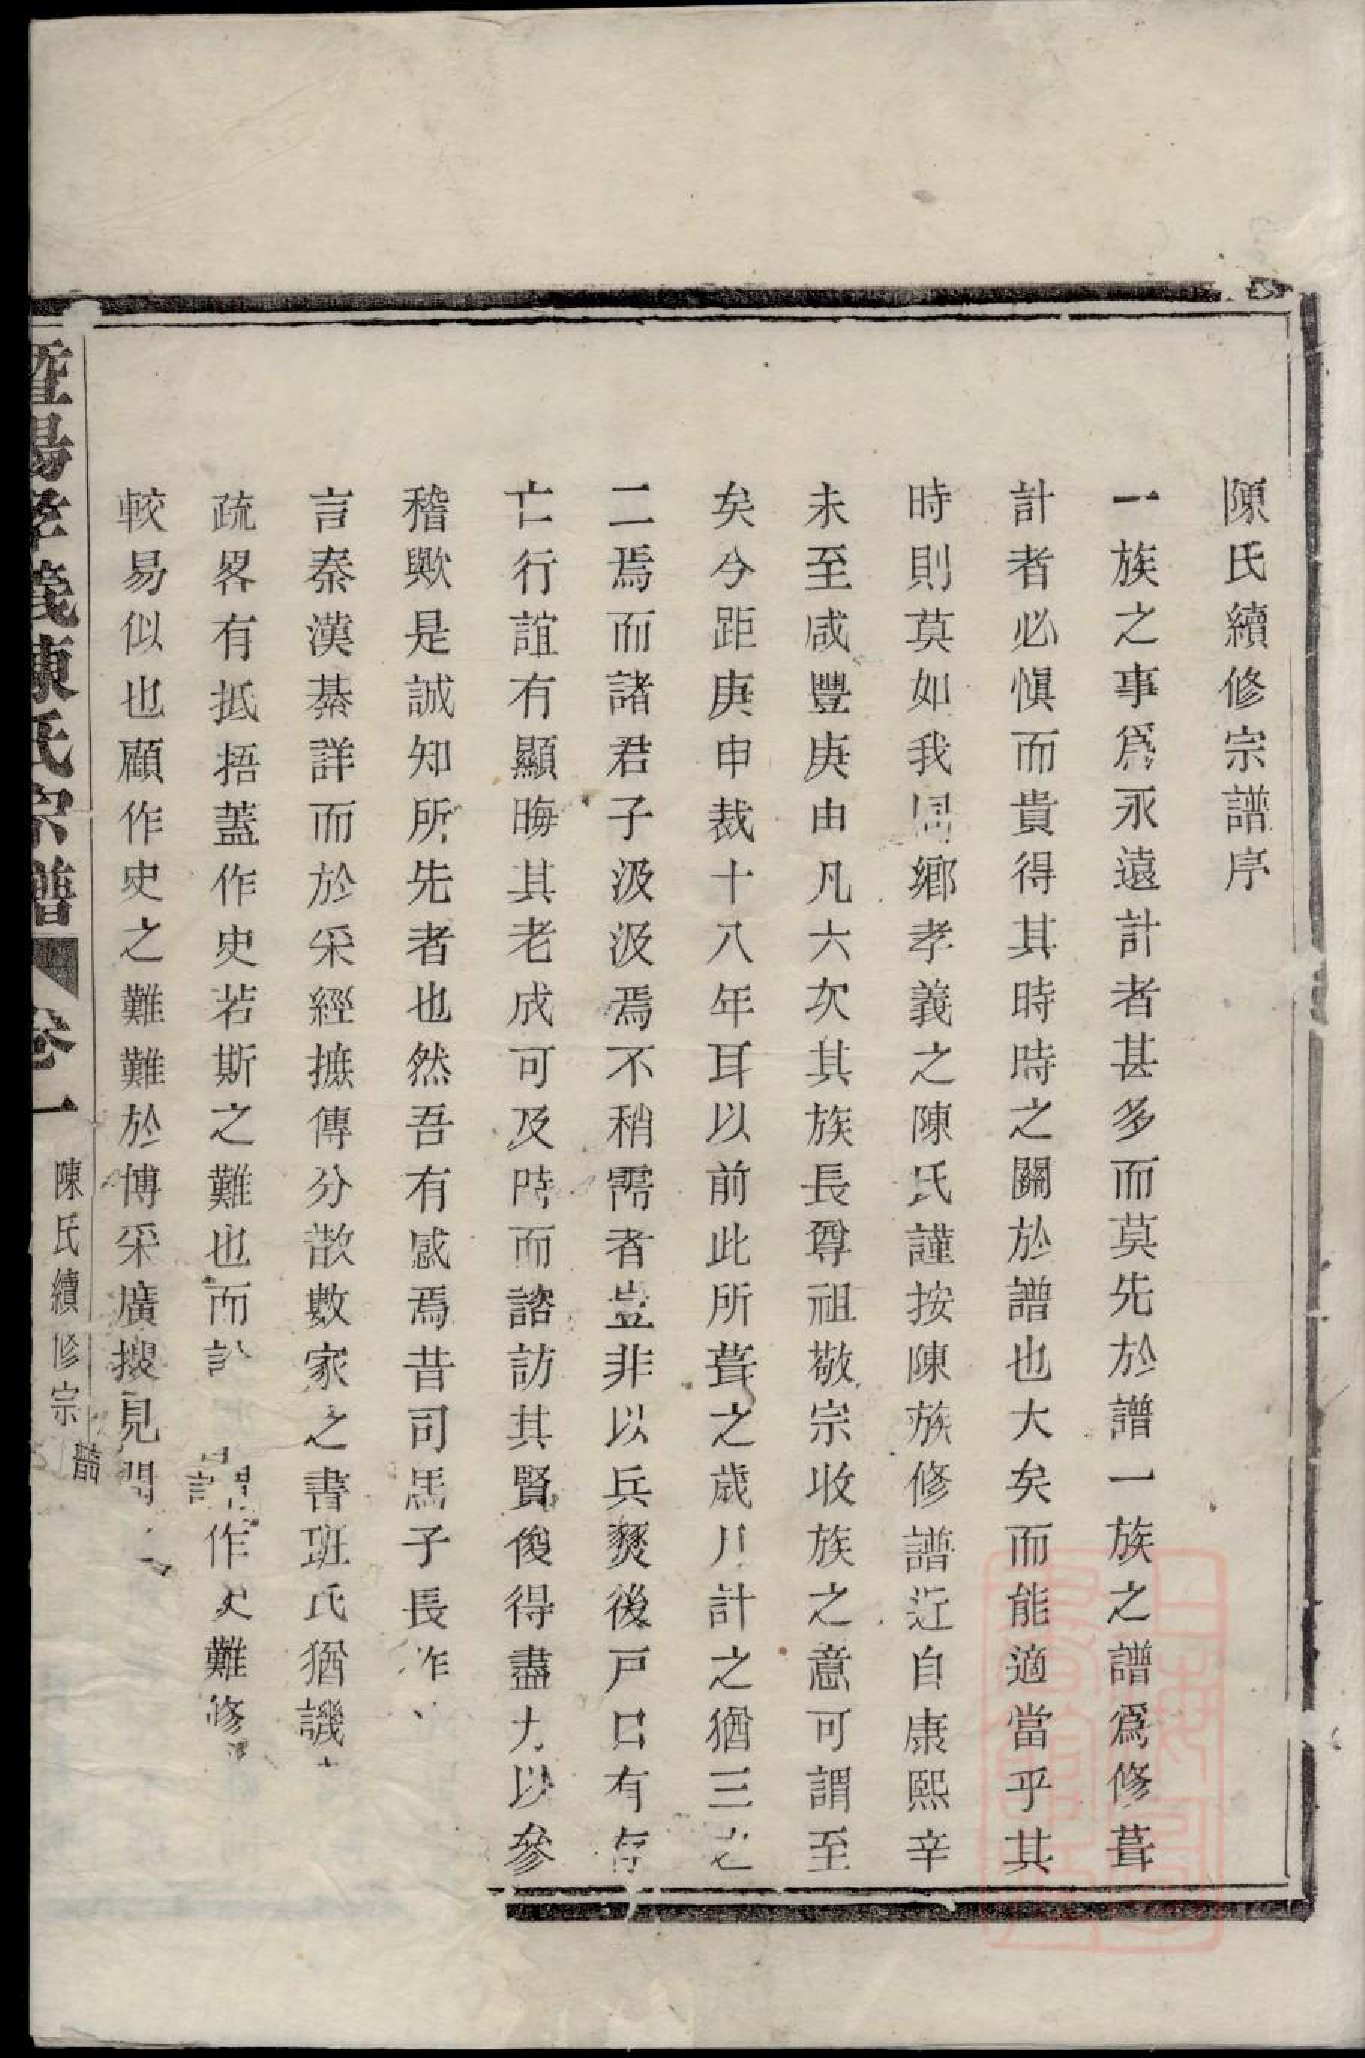 陳氏續修宗譜序
一族之事爲永遠計者甚多而莫先於譜一族之譜爲修葺
計者必愼而貴得其時時之關於譜也大矣而能適當乎其
時則莫如我同鄉孝義之陳氏謹按陳族修譜近自康熙辛
未至咸豐庚申凡六次其族長尊祖敬宗收族之意可謂至
矣今距庚申裁十八年耳以前此所葺之歲月計之猶三之
二焉而諸君子汲汲焉不稍需者豈非以兵燹後戸口有存
亡行誼有顯晦其老成可及時而諮訪其賢俊得盡力以參
稽歟是誠知所先者也然吾有感焉昔司馬子長作
言秦漢綦詳而於采經摭傳分散數家之書班氏猶譏
疏畧有抵捂蓋作史若斯之難也而 謂作史難修
較易似也顧作史之難難於博采廣搜見聞
暨陽孝義陳氏宗譜 卷一 陳氏續修宗譜